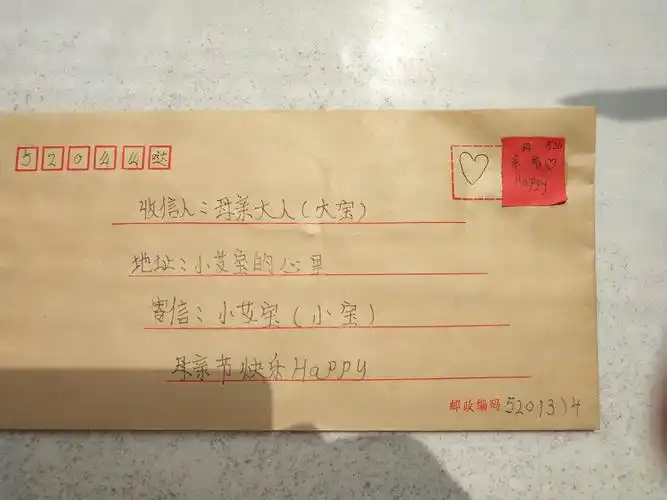 5 2 0 4 4 哒
520
母
亲 节 ♡
Happy
收信人：母亲大人（大宝）
地址：小艾宝的心里
寄信：小艾宝（小宝）
母亲节快乐Happy
邮政编码 5201314